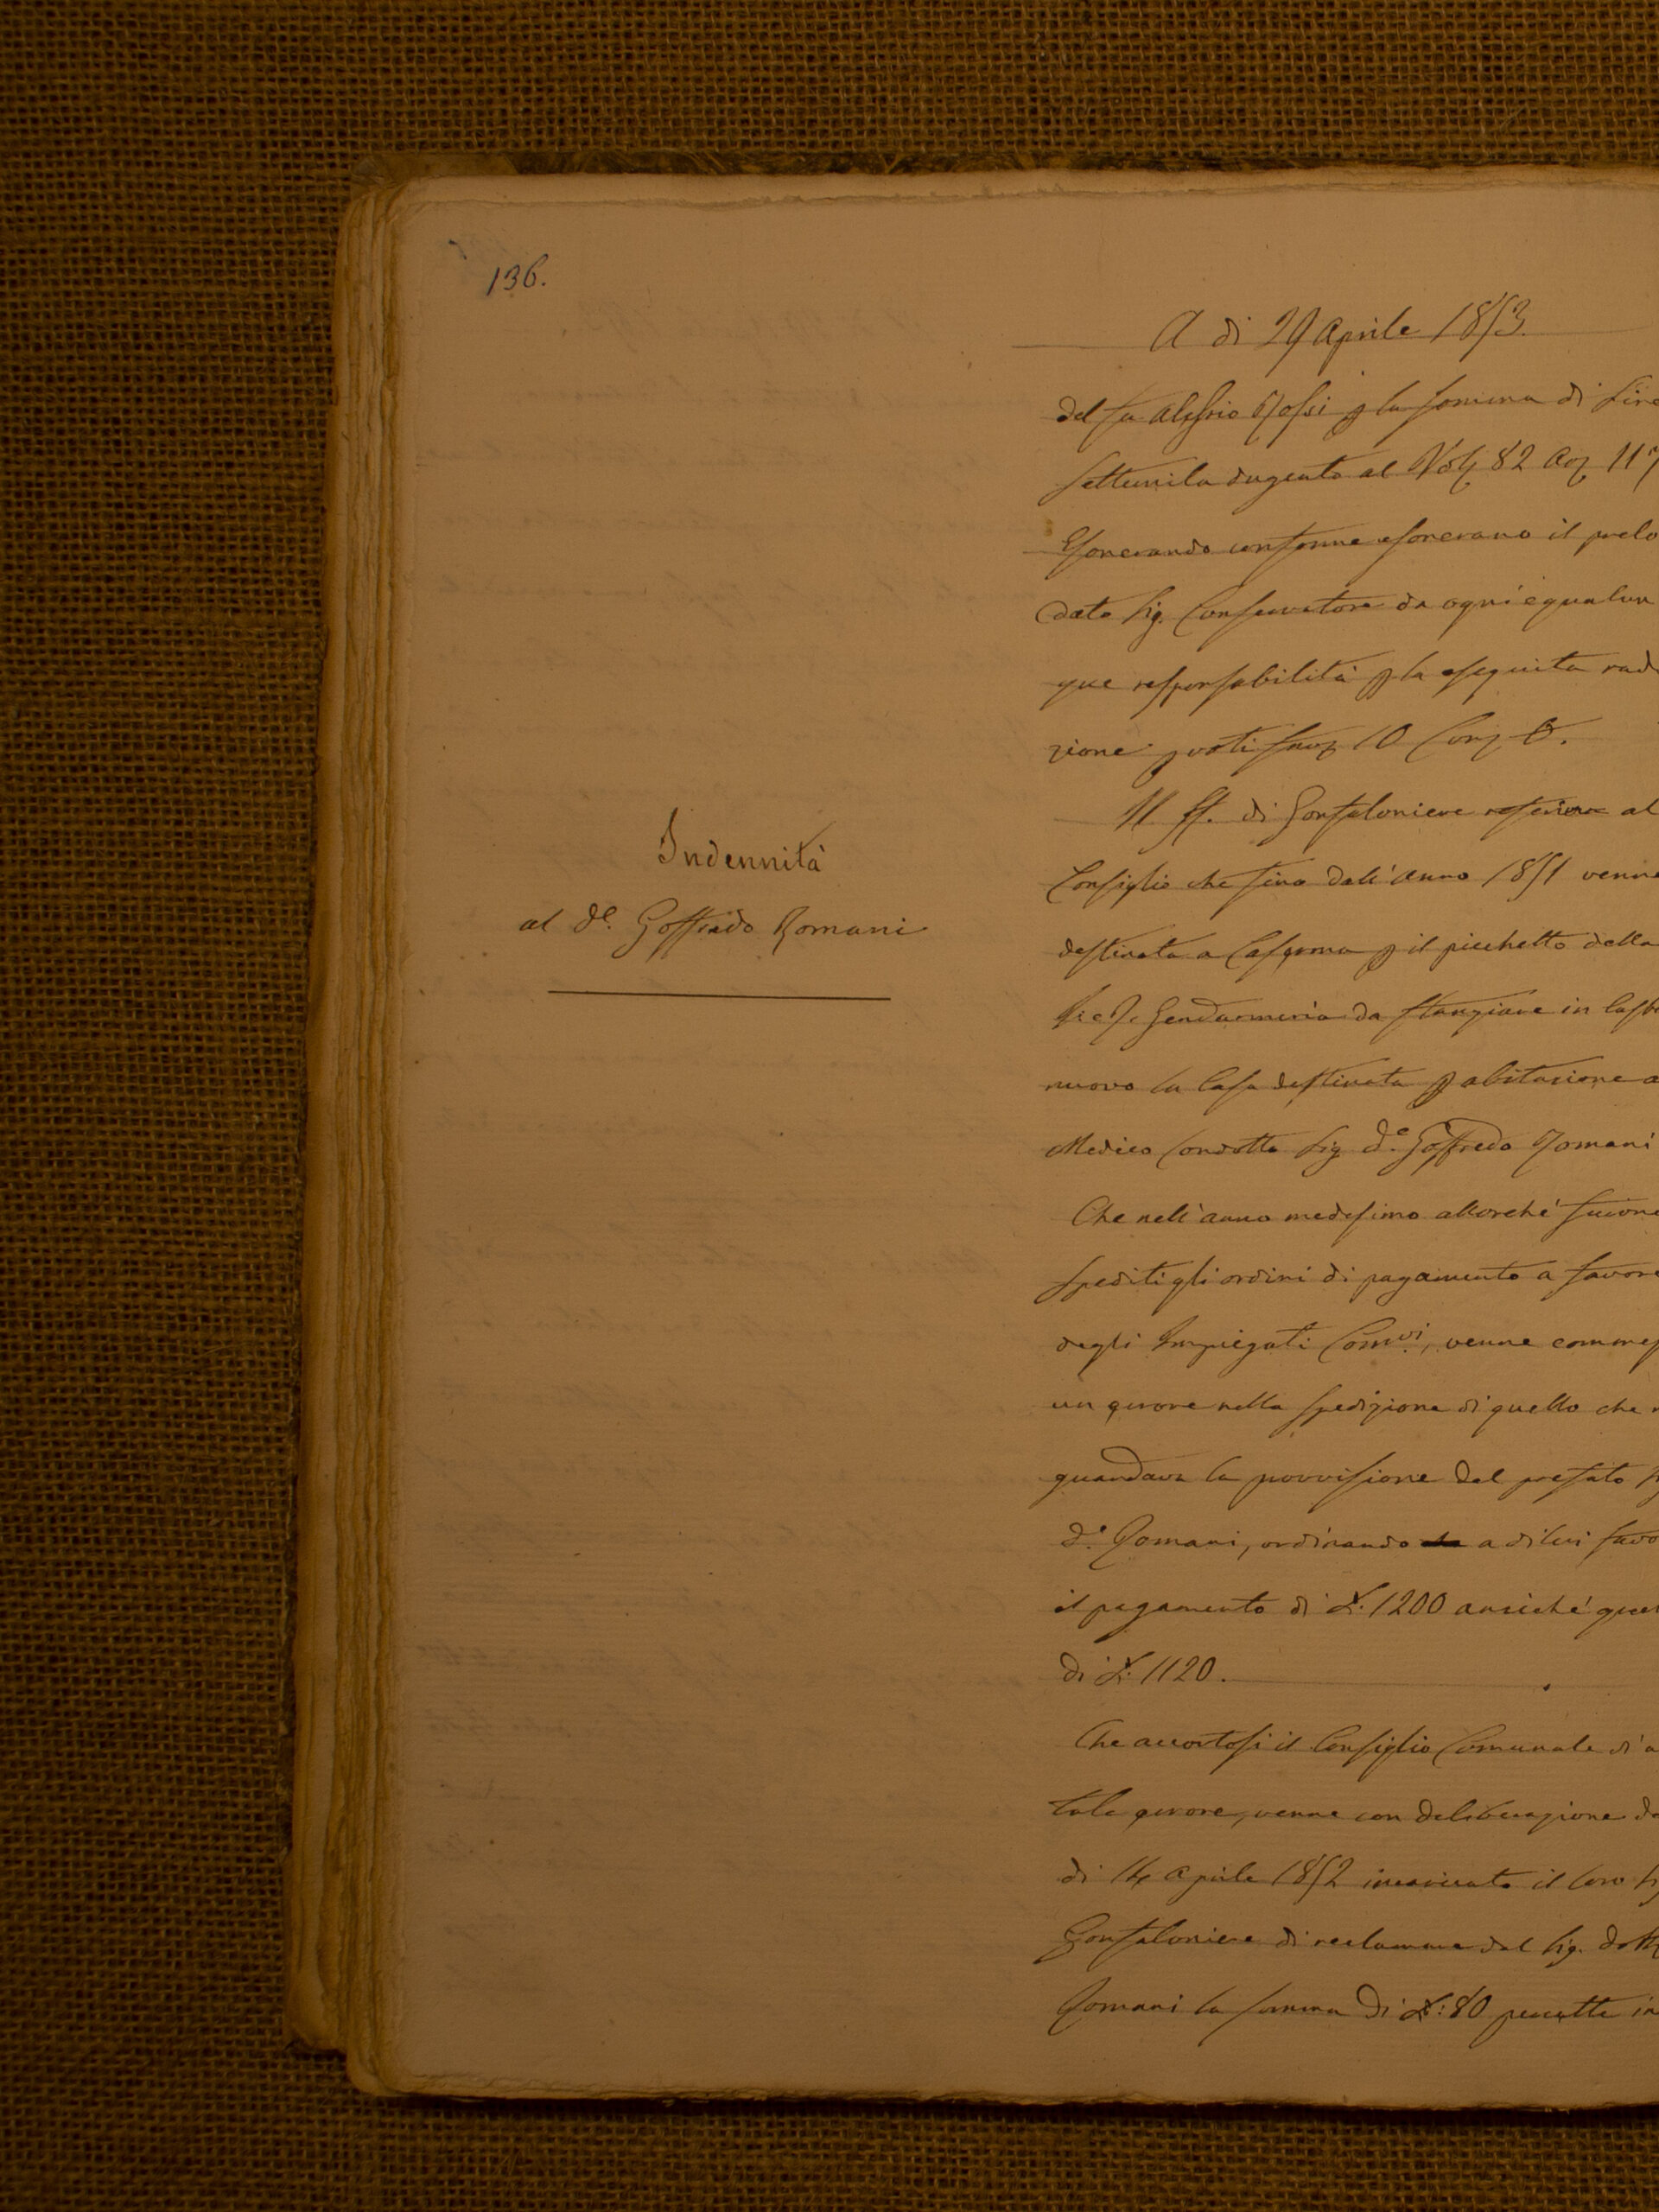 136.
A di 29 Aprile 1853.
del fu Alessio Rossi p la somma di Lire
settemila dugento al Vol. 82 Art. 117
Esonerando conforme esonerano il prelo
dato Sig. Conservatore da ogni e qualun
que responsabilità p la eseguita radi
zione p voti favi 10 Cont. 0.
Il ff. di Gonfaloniere referiva al
Consiglio che fino dall'anno 1851 venne
Indennità
al D.e Goffredo Romani
destinata a Caserma p il picchetto della
Gendarmeria da stanziare in Castel
nuovo la Casa destinata p abitazione a
Medico Condotto Sig. D.e Goffredo Romani
Che nell'anno medesimo allorché furono
spediti gli ordini di pagamento a favore
degli Impiegati Com.vi, venne commes
un errore nella spedizione di quello che r
guardava la provvisione del prefato
D.e Romani, ordinando a di lui favo
il pagamento di £. 1200 anziché quel
di £. 1120.
Che accortosi il Consiglio Comunale di a
tale errore, venne con deliberazione de
di 14 Aprile 1852 incaricato il loro
Gonfaloniere di reclamare dal Sig. Dott.
Romani la somma di £: 80 percette in